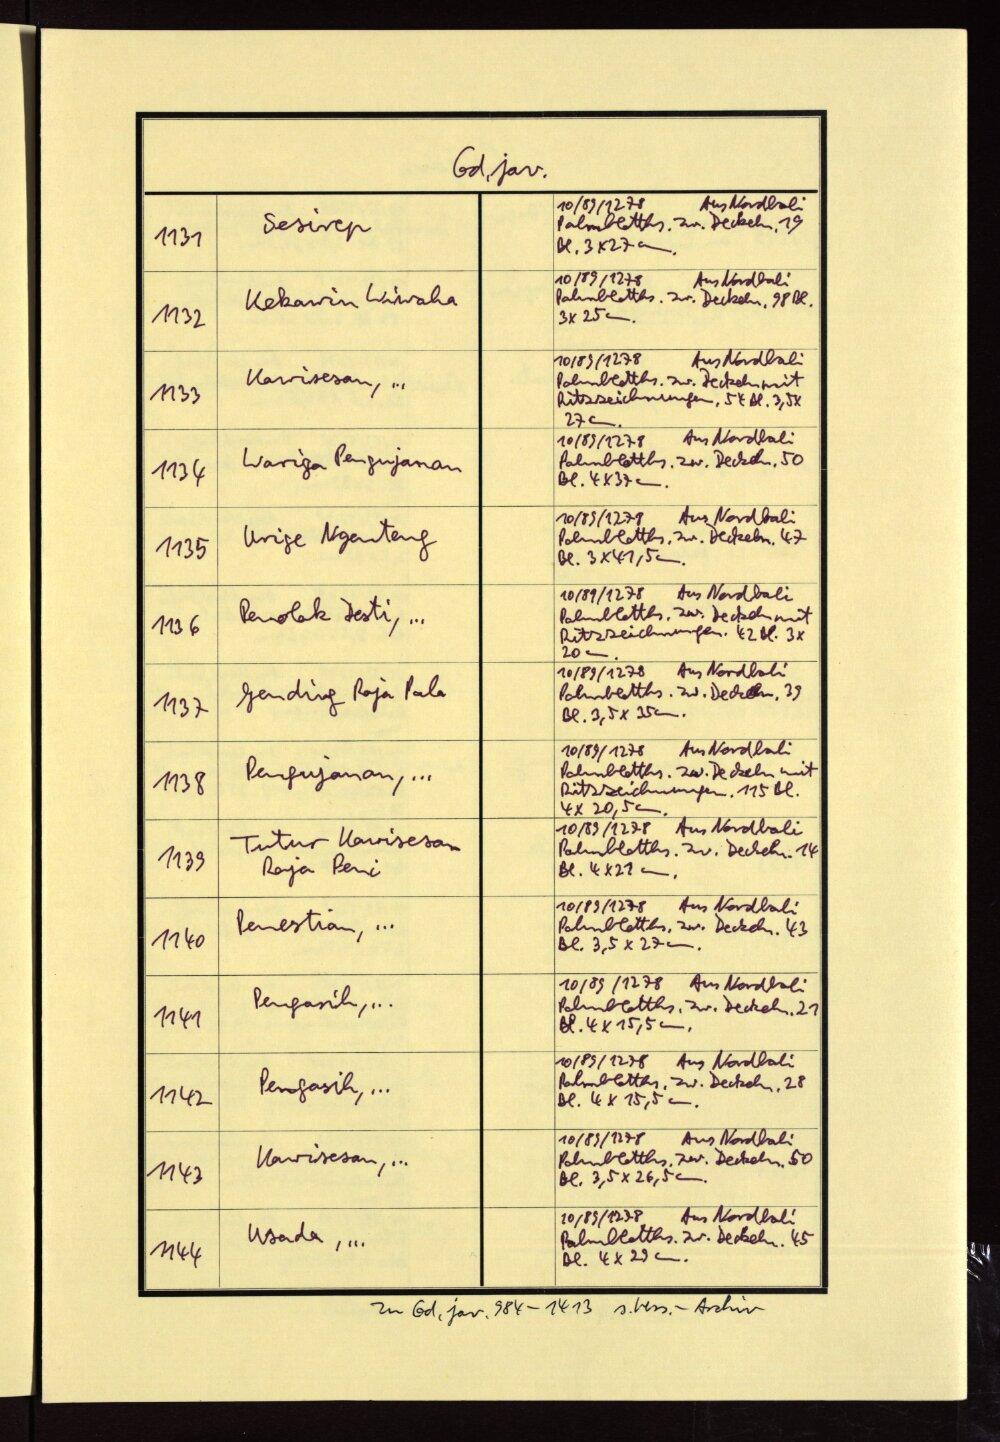 Gd. jav.
1131 Sesirep 10/89/1278 Aus Nordbali
Palmblatths. zw. Deckeln. 19
Bl. 3 x 27 cm.
1132 Kekawin Wiwaha 10/89/1278 Aus Nordbali
Palmblatths. zw. Deckeln. 98 Bl.
3 x 25 cm.
1133 Kawisesan, ... 10/89/1278 Aus Nordbali
Palmblatths. zw. Deckeln mit
Ritzzeichnungen. 54 Bl. 3,5 x
27 cm.
1134 Wariga Pengujanan 10/89/1278 Aus Nordbali
Palmblatths. zw. Deckeln. 50
Bl. 4 x 37 cm.
1135 Urige Nganteng 10/89/1278 Aus Nordbali
Palmblatths. zw. Deckeln. 47
Bl. 3 x 41,5 cm.
1136 Penolak Desti, ... 10/89/1278 Aus Nordbali
Palmblatths. zw. Deckeln mit
Ritzzeichnungen. 42 Bl. 3 x
20 cm.
1137 Gending Raja Pala 10/89/1278 Aus Nordbali
Palmblatths. zw. Deckeln. 39
Bl. 3,5 x 35 cm.
1138 Pengujanan, ... 10/89/1278 Aus Nordbali
Palmblatths. zw. Deckeln mit
Ritzzeichnungen. 115 Bl.
4 x 20,5 cm.
1139 Tutur Kawisesan 10/89/1278 Aus Nordbali
Raja Peni Palmblatths. zw. Deckeln. 14
Bl. 4 x 21 cm.
1140 Penestian, ... 10/89/1278 Aus Nordbali
Palmblatths. zw. Deckeln. 43
Bl. 3,5 x 27 cm.
1141 Pengasih, ... 10/89/1278 Aus Nordbali
Palmblatths. zw. Deckeln. 21
Bl. 4 x 15,5 cm.
1142 Pengasih, ... 10/89/1278 Aus Nordbali
Palmblatths. zw. Deckeln. 28
Bl. 4 x 15,5 cm.
1143 Kawisesan, ... 10/89/1278 Aus Nordbali
Palmblatths. zw. Deckeln. 50
Bl. 3,5 x 26,5 cm.
1144 Usada, ... 10/89/1278 Aus Nordbali
Palmblatths. zw. Deckeln. 45
Bl. 4 x 29 cm.
Zu Gd. jav. 984 - 1413 s. Hss. - Archiv